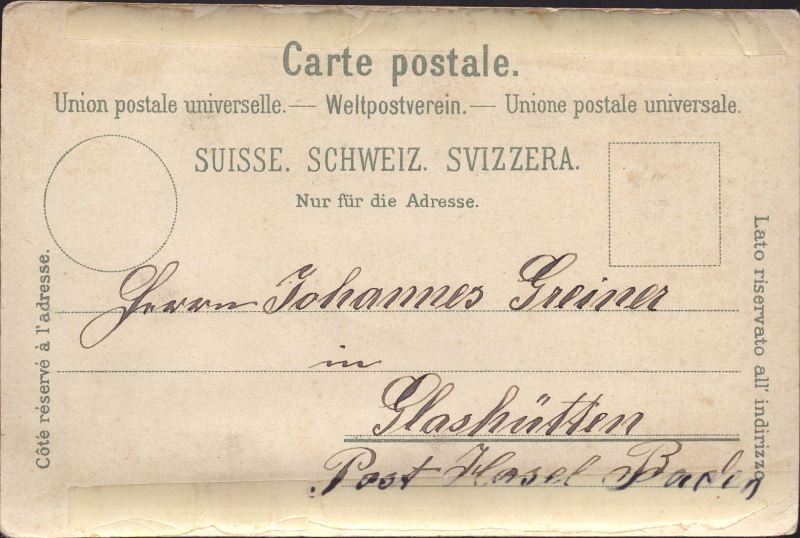 Carte postale.
Union postale universelle. — Weltpostverein. — Unione postale universale.
SUISSE. SCHWEIZ. SVIZZERA.
Nur für die Adresse.
Côté réservé à l'adresse.
Lato riservato all' indirizzo
Herrn Johannes Greiner
in
Glashütten
Post Hasel Baden